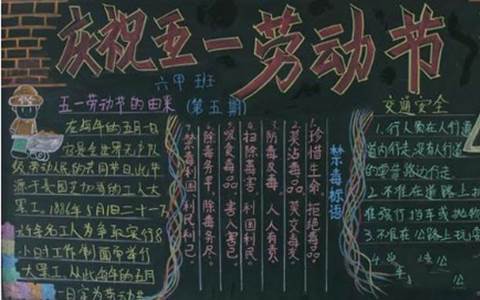 庆祝五一劳动节
六甲班
(第五期)
五一劳动节的由来
在每年的五月一日
是全世界无产阶
级劳动人民的共同节日,此节
源于美国芝加哥的工人大
罢工,1886年5月1日二十一万
6千名工人为争取实行8
小时工作制而举行
大罢工,从此每年的五月
一日定为劳动节
禁毒标语
1.珍惜生命 拒绝毒品
2.莫沾毒品 莫交毒友
3.防毒反毒 人人有责
4.扫除毒害 利国利民
5.吸食毒品 害人害己
6.除毒务早,除毒务尽
7.禁毒利国利民利己
交通安全
1.行人须在人行道
道内行走,没有人行道
的要靠路边行走
2.不准在道路上扒
车强行拦车或抛物
3.不准在公路上玩